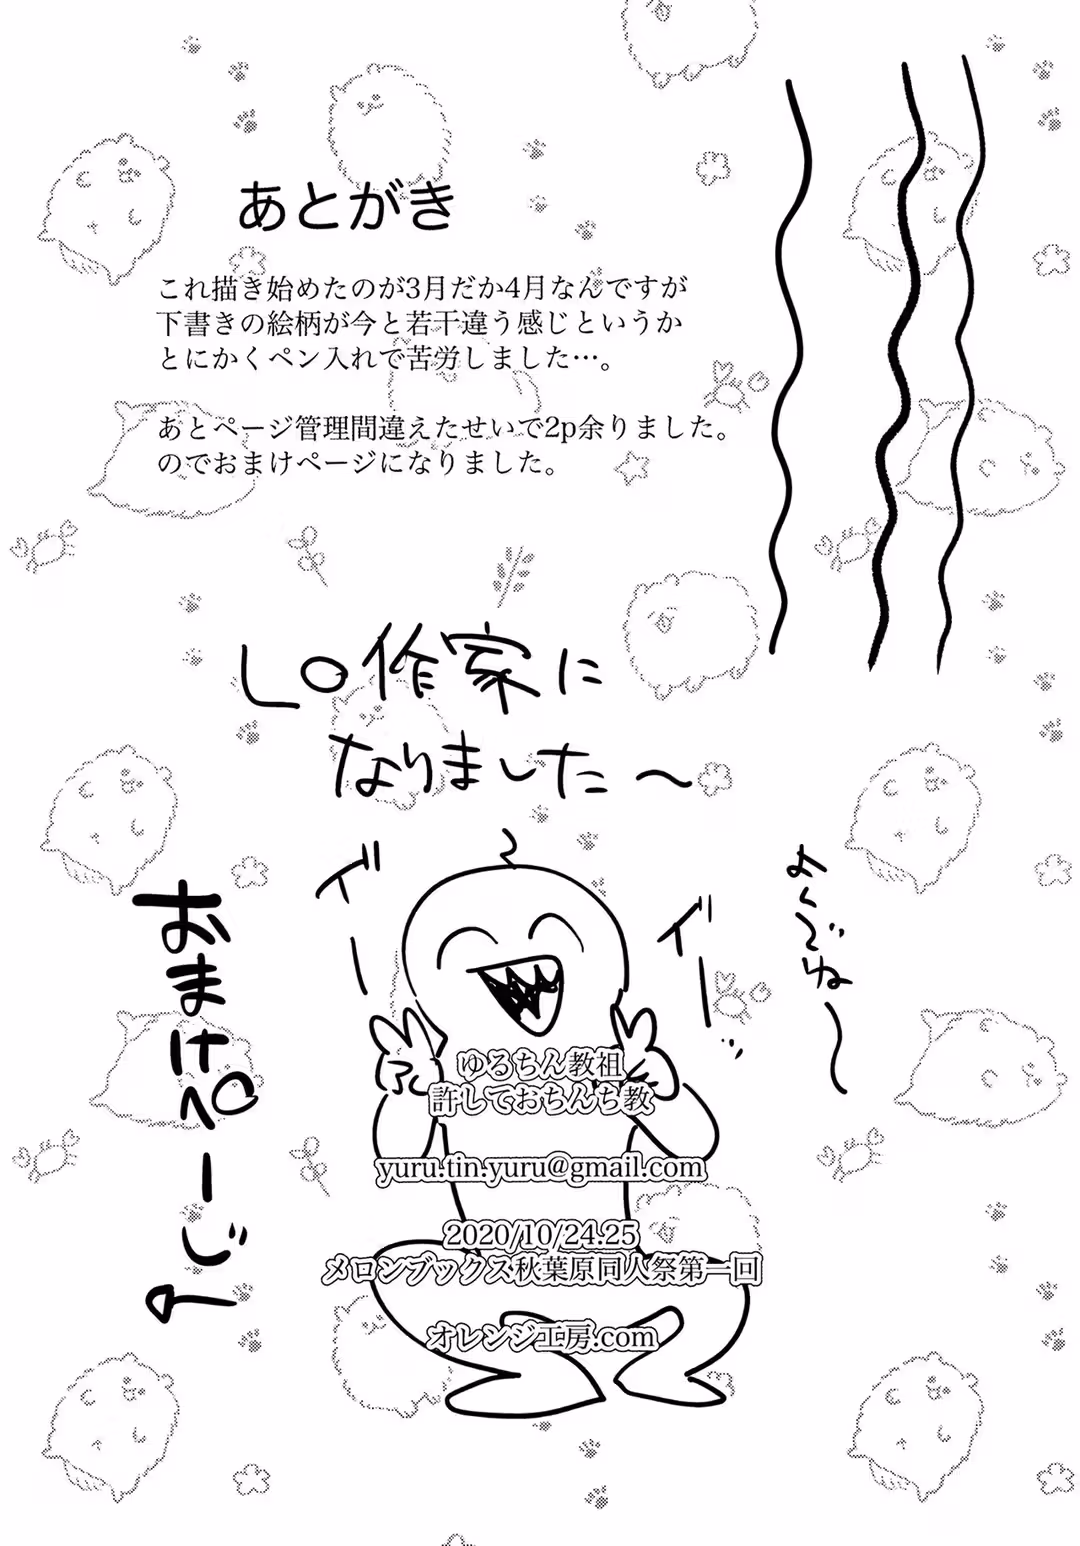 あとがき
これ描き始めたのが3月だか4月なんですが
下書きの絵柄が今と若干違う感じというか
とにかくペン入れで苦労しました…。
あとページ管理間違えたせいで2p余りました。
のでおまけページになりました。
LO作家に
なりました〜
イ゛ー
イ゛ー…
おまけぺーじ
ゆるちん教祖
許しておちんち教
yuru.tin.yuru@gmail.com
2020/10/24.25
メロンブックス秋葉原同人祭第一回
オレンジ工房.com